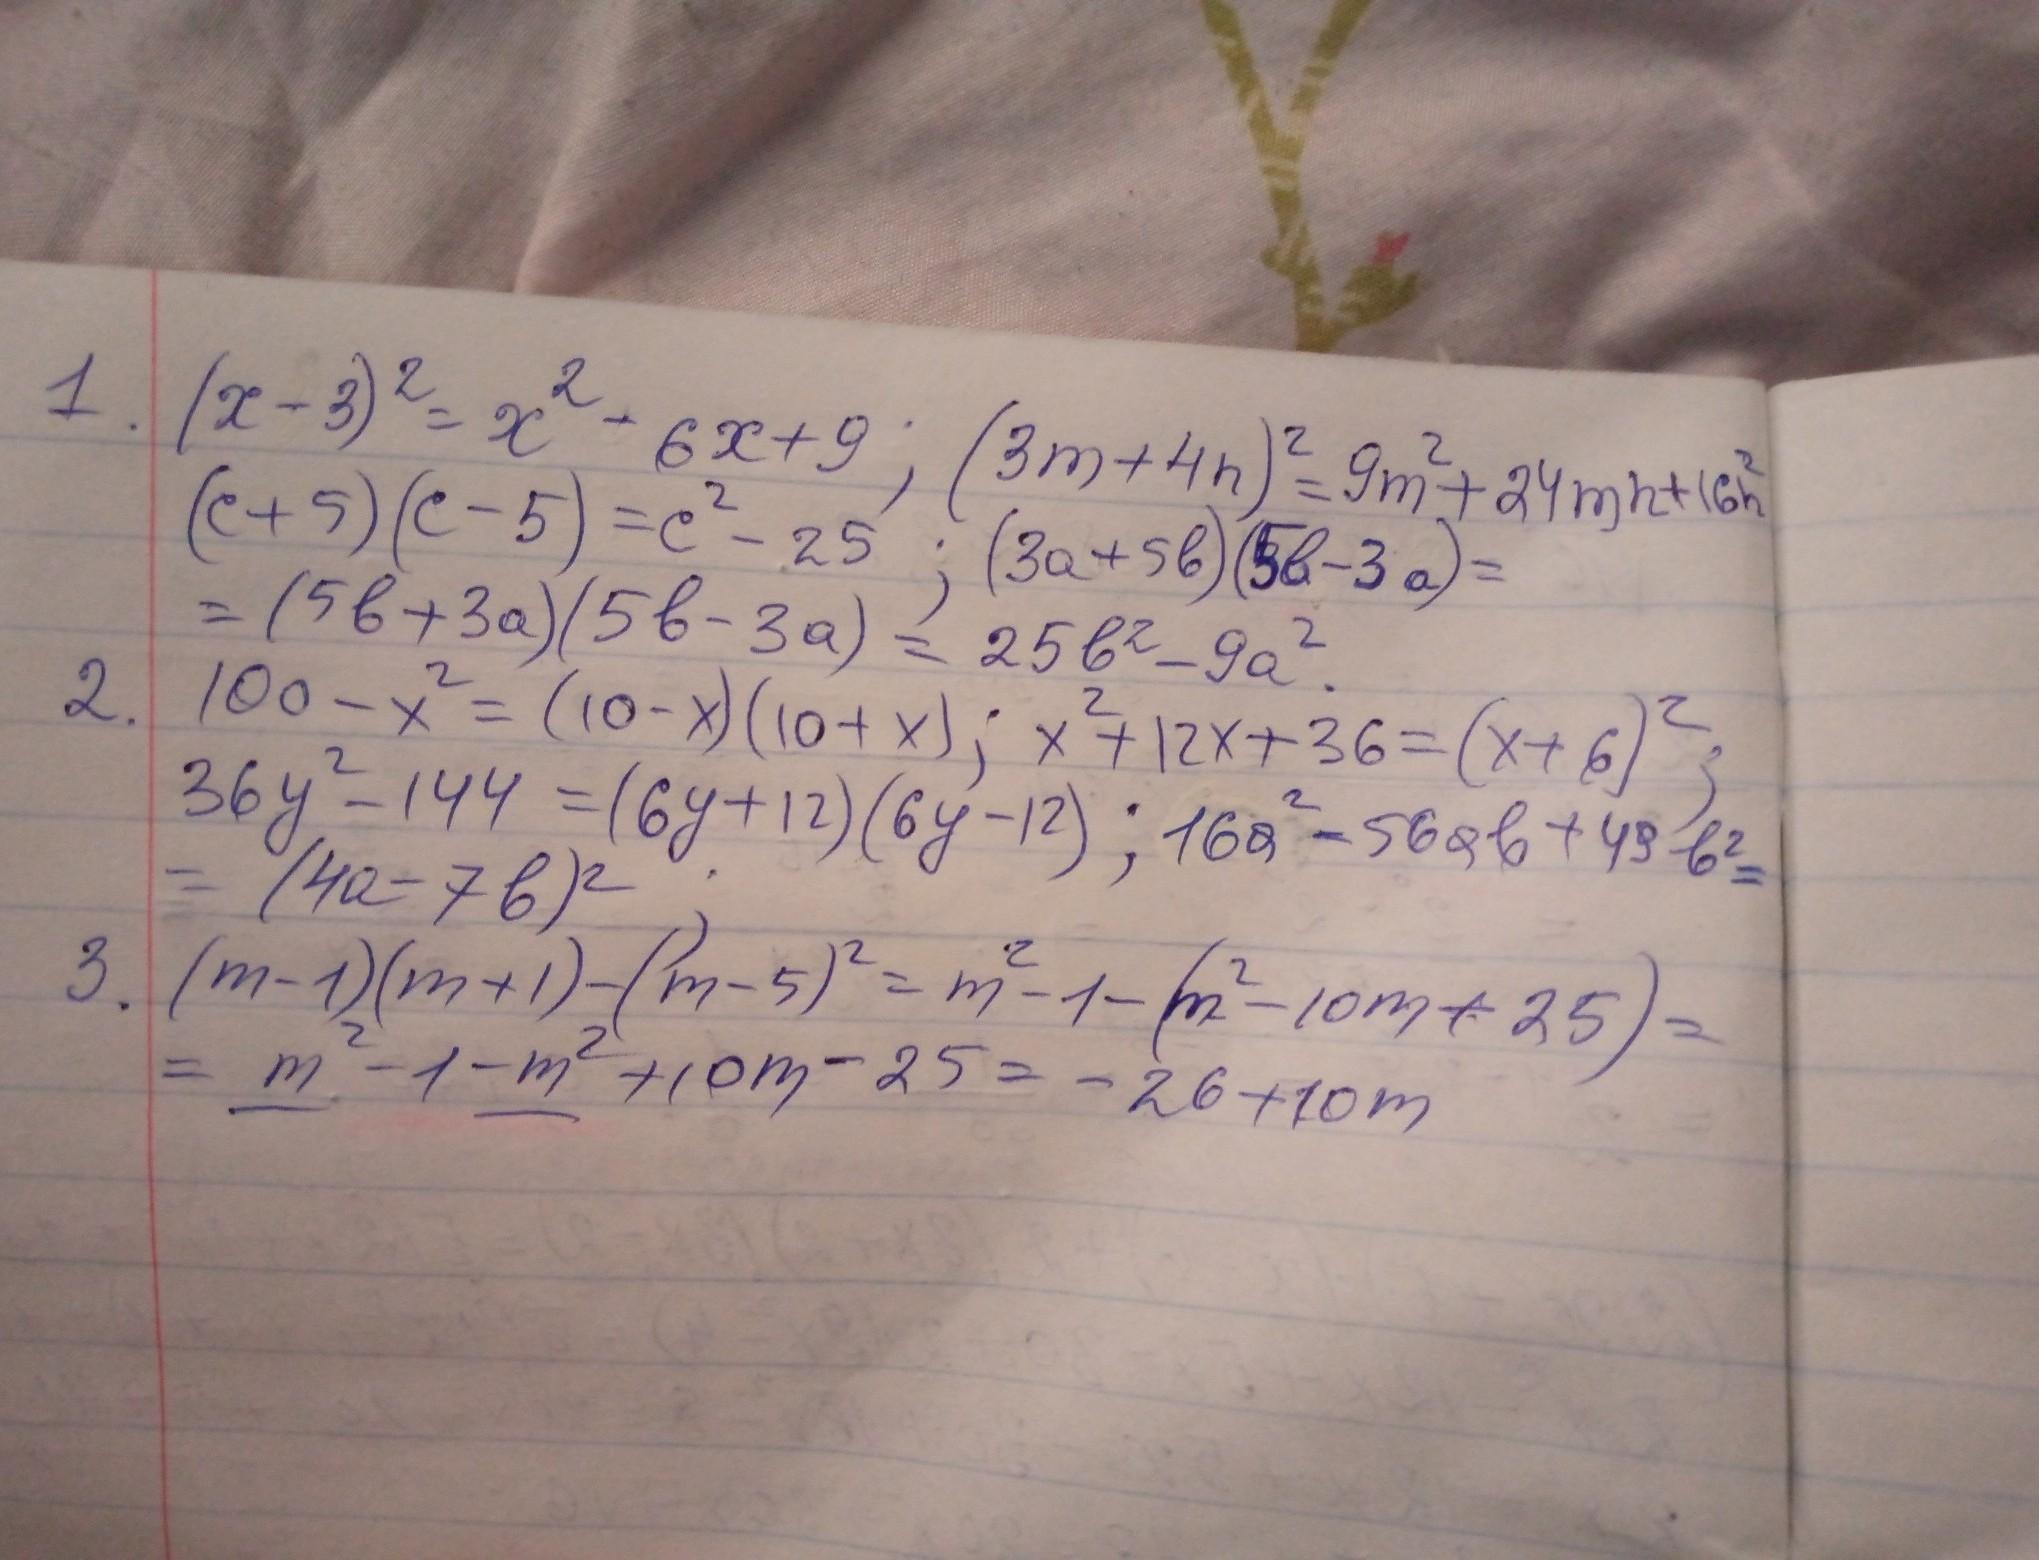 1. (x-3)²= x² - 6x+9; (3m+4n)²=9m²+24mn+16n²
(c+5)(c-5)=c²-25; (3a+5b)(5b-3a)=
=(5b+3a)(5b-3a)= 25b²-9a².
2. 100-x²=(10-x)(10+x); x²+12x+36=(x+6)²;
36y²-144=(6y+12)(6y-12); 16a²-56ab+49b²=
= (4a-7b)²;
3. (m-1)(m+1)-(m-5)²=m²-1-(m²-10m+25)=
= m²-1-m²+10m-25= -26+10m